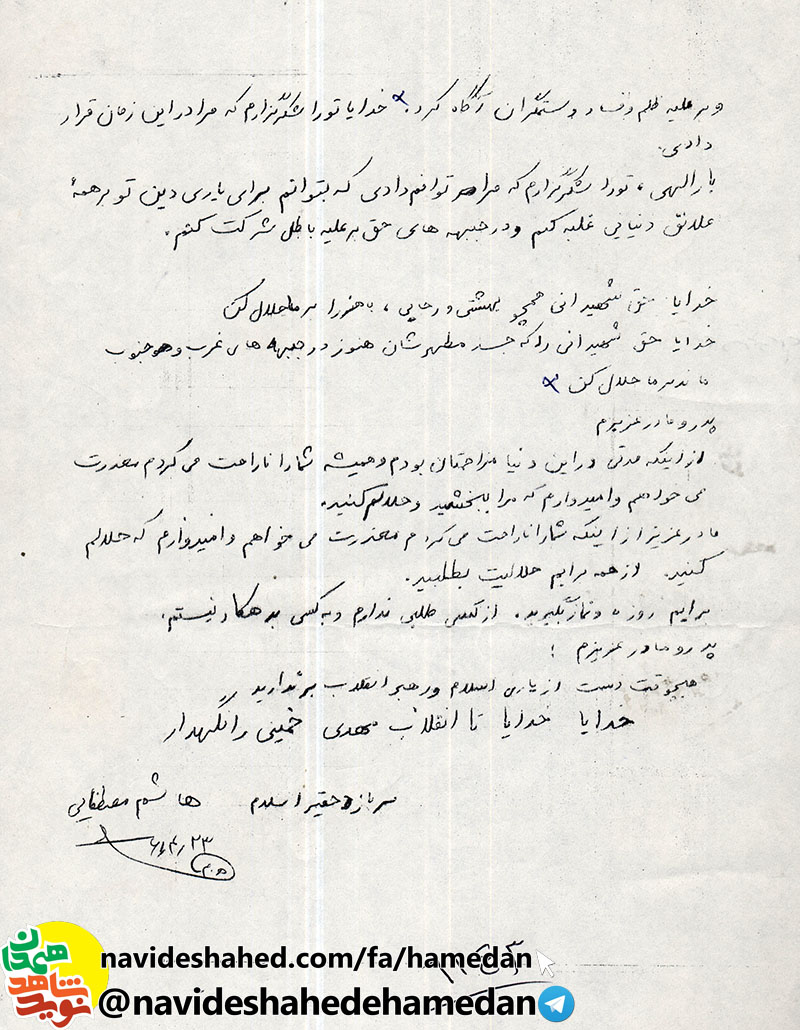 و بر علیه ظلم و فساد و ستمگران آگاه کرد. خدایا تو را شکرگزارم که مرا در این زمان قرار
دادی.
بار الهی، تو را شکرگزارم که مرا توانم دادی که بتوانم برای یاری دین تو بر همهٔ
علائق دنیایی غلبه کنم و در جبهه های حق بر علیه باطل شرکت کنم.
خدایا حق شهیدانی همچو بهشتی و رجایی، باهنر را بر ما حلال کن
خدایا حق شهیدانی را که جسد مطهرشان هنوز در جبهه های غرب و جنوب
مانده بر ما حلال کن
پدر و مادر عزیزم
از اینکه مدتی در این دنیا مزاحمتان بودم و همیشه شما را ناراحت می کردم معذرت
می خواهم و امیدوارم که مرا ببخشید و حلالم کنید.
مادر عزیز از اینکه شما را ناراحت می کردم معذرت می خواهم و امیدوارم که حلالم
کنید. از همه برایم حلالیت بطلبید.
برایم روزه و نماز بگیرید. از کسی طلبی ندارم و به کسی بدهکار نیستم.
پدر و مادر عزیزم :
هیچوقت دست از یاری اسلام و رهبر انقلاب برندارید
خدایا خدایا تا انقلاب مهدی خمینی را نگهدار
سرباز حقیر اسلام هاشم مصطفایی
۶۱/۴/۲۳
navideshahed.com/fa/hamedan
@navideshahedehamedan
نوید شاهد همدان